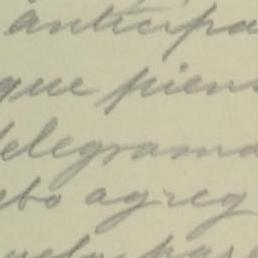 anticipa
que piens
elegrama
ebo agreg